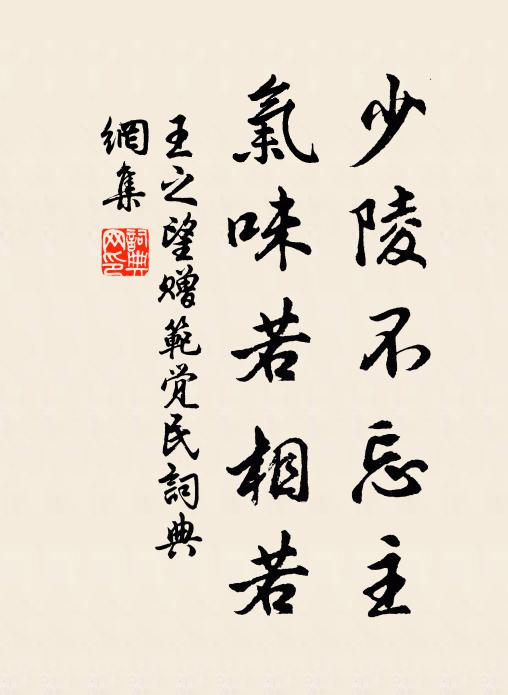 少陵不忘主
氣味若相若
王之望贈範覚民詞典
網集
詞典
网印